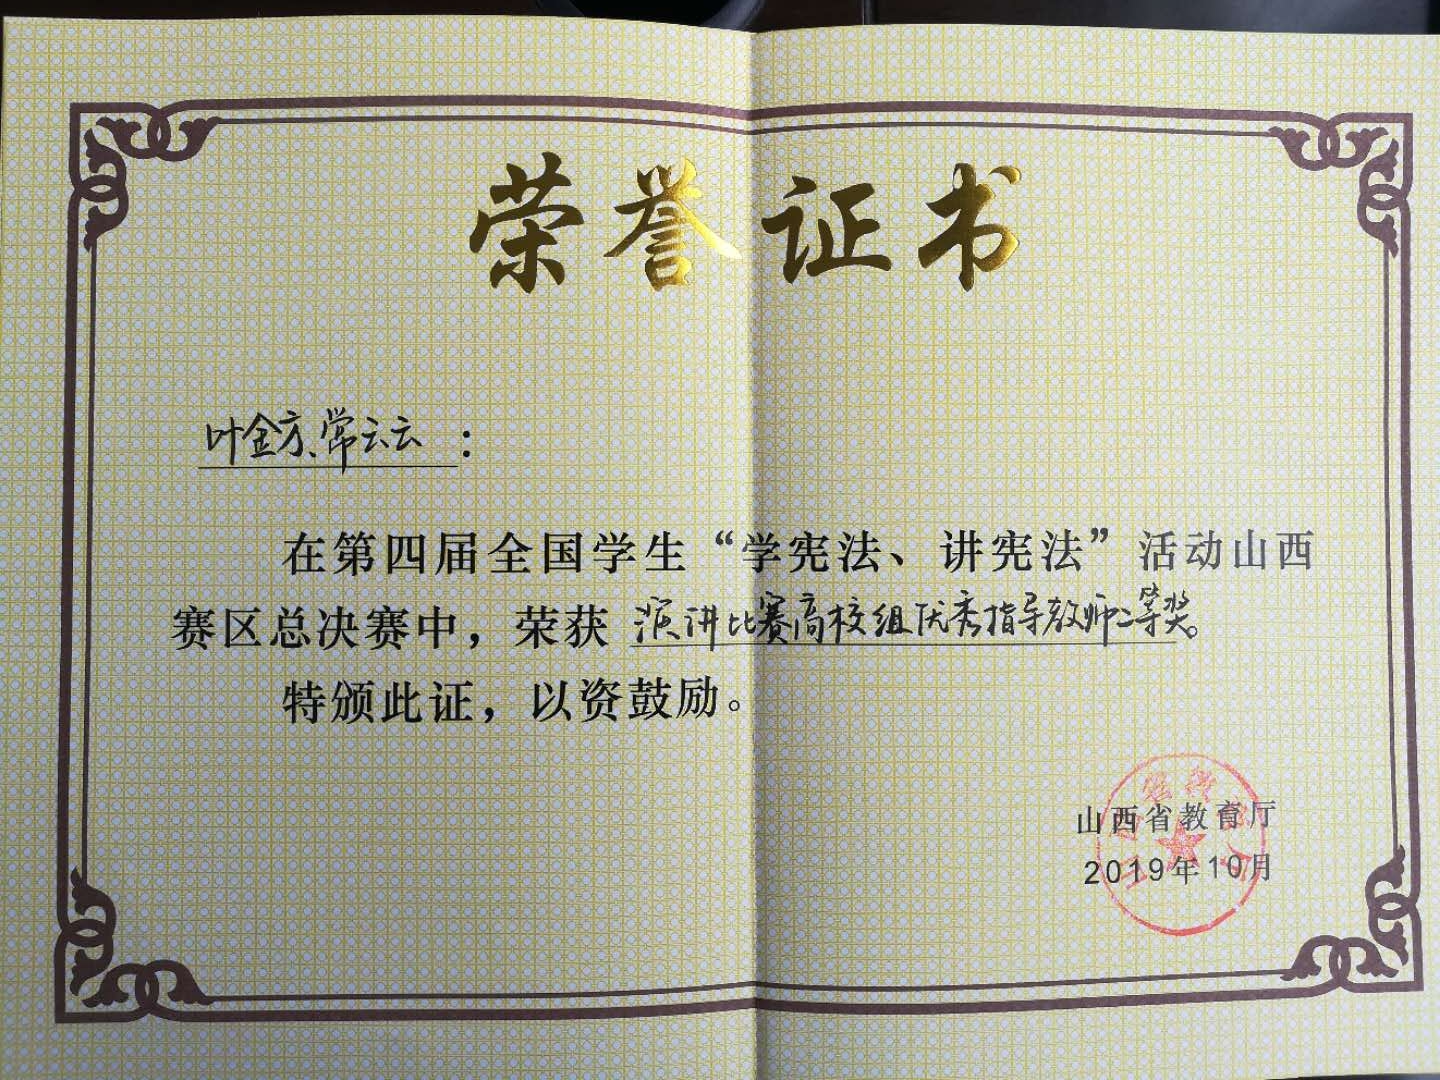 荣誉证书
叶金方、常云云：
在第四届全国学生“学宪法、讲宪法”活动山西
赛区总决赛中，荣获 演讲比赛高校组优秀指导教师二等奖。
特颁此证，以资鼓励。
山西省教育厅
2019年10月